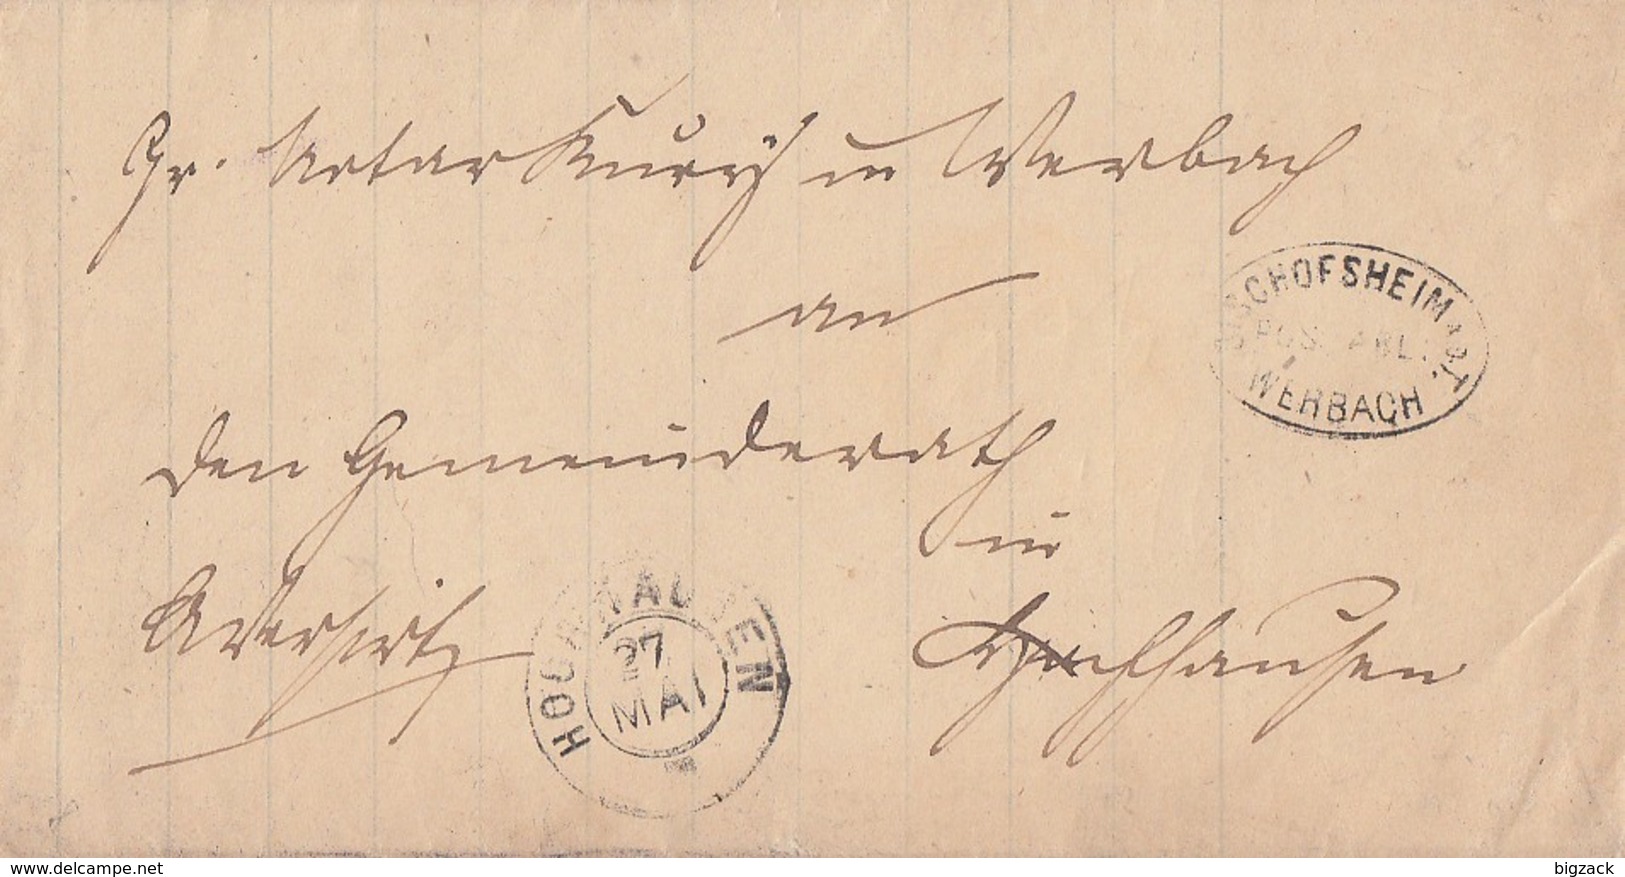 Gr. Notar Kurz in Werbach
an
BISCHOFSHEIM A.D.T.
POSTABL.
WERBACH
den Gemeinderath
in
Hochhausen
HOCHHAUSEN
27
MAI
www.delcampe.net
bigzack